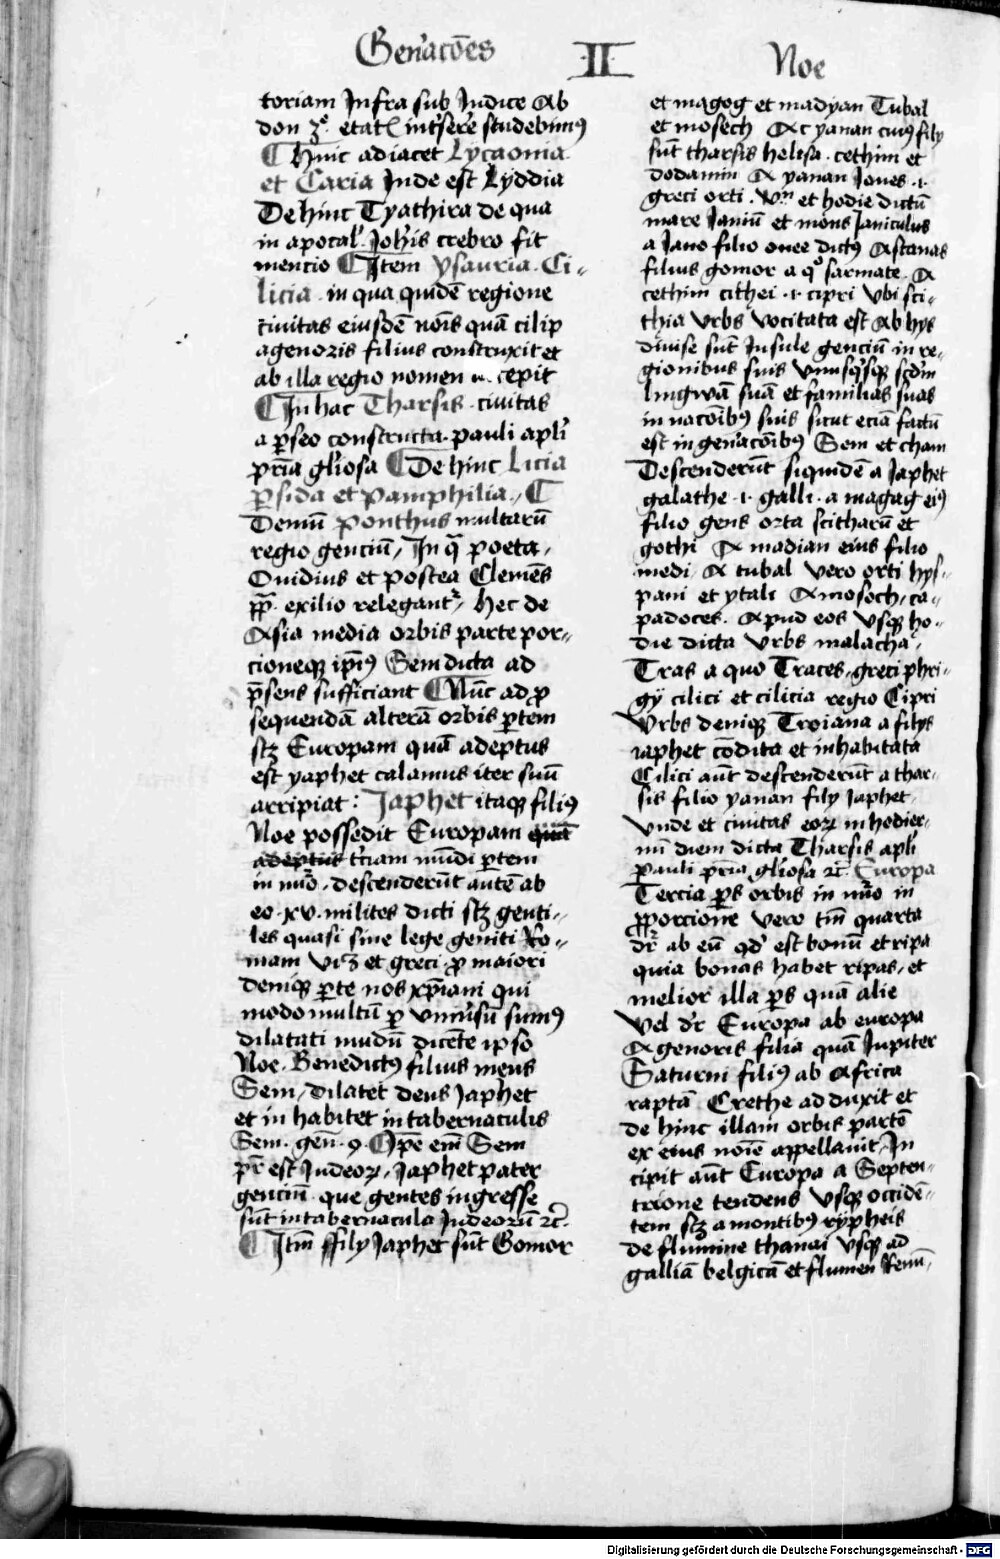 Gen'acōes II Noe
toriam Infra sub Iudice Ab
don 3ͤ. etatꝭ int'serere studebimꝰ
¶ Huic adiacet Lycaonia
et Caria Inde est Lyddia
Dehinc Tyathira de qua
in apocal'. Joh'is crebro fit
mencio ¶ Item ysauria. Ci-
licia. in qua quidē regione
ciuitas eiusdē nois quā cilip
agenoris filius construxit et
ab illa regio nomen cepit
¶ In hac Tharsis. ciuitas
a p̄seo constructa. pauli apl'i
pr̄ia gl'iosa ¶ De hinc Licia
p̄sida et pamphilia. ¶
Demū ponthus multarū
regio genciū, In q̄ poeta,
Ouidius et postea Clemēs
pp̄. exilio relegant'r, hec de
Asia media orbis parte por-
cioneqꝫ ip̄iꝰ Sem dicta ad
p̄sens sufficiant ¶ Nūc ad ꝓ
sequendā alterā orbis p̄tem
scꝫ Europam quā adeptus
est yaphet calamus iter suū
arripiat: Iaphet itaqꝫ filiꝰ
Noe possedit Europam quā
adeptus t'ciam mūdi p̄tem
in nu'o. descenderūt autē ab
eo. xv. milites dicti scꝫ genti-
les quasi sine lege geniti Ro-
mam et greci. ꝓ maiori
deniqꝫ p̄te nos xp̄iani qui
modo multū ꝑ vniu'sū sumꝰ
dilatati mūdū dicēte ipso
Noe. Benedictꝰ filius meus
Sem, dilatet deus Iaphet
et in habitet in tabernaculis
Sem. gen̄. 9. Ope em̄ Sem
pr̄ est Iudeoꝝ, Iaphet pater
genciū. que gentes ingresse
sūt in tabernacula Iudeorū ꝛc̄.
¶ Itm̄ ffily Iaphet sūt Gomor
et magog et madyan Tubal
et mosech Ac yanan cuiꝰ fily
sūt tharsis helisa. cethim et
dodamin A yanan Iones .i.
greci orti. vn̄ et hodie dictū
mare Ianiū et mons Ianiculus
a Iano filio onee dictꝰ Astanas
filius gomor a qͦ sarmate. A
cethim cithei .i. cipri vbi sci-
thia vrbs vocitata est Ab hys
diuise sūt Insule genciū in re-
gionibus suis vnusqꝫsqꝫ scd'm
lingwā suā et familias suas
in nacoībꝰ suis sicut eciā factū
est in gen'acoībꝰ Sem et cham
Descenderūt siquidē a Iaphet
galathe .i. galli. a magag eiꝰ
filio gens orta scitharū et
gothi A madian eius filio
medi, A tubal vero orti hys-
pani et ytali A mosoch, ca-
padoces. Apud eos vsqꝫ ho-
die dicta vrbs malacha,
Tras a quo Traces, greci phri-
gy cilici et cilicia regio Cipri
vrbs deniqꝫ Troiana a filys
iaphet cōdita et inhabitata
Cilici aūt descenderūt a thar-
sis filio yanan fily Iaphet,
vnde et ciuitas eoꝝ in hodier-
nū diem dicta Tharsis apl'i
pauli pr̄ia gl'iosa ꝛc̄. Europa
Tercia p̄s orbis in nu'o in
ꝓporcione vero tm̄ quarta
dr̄ ab eū qd' est bonū et ripa
quia bonas habet ripas, et
melior illa p̄s quā alie
vel dr̄ Europa ab europa
Agenoris filia quā Iupiter
Saturni filiꝰ ab Africa
raptā Crethe adduxit et
de hinc illam orbis partē
ex eius noīe appellauit, In
cipit aūt Europa a Septen-
trione tendens vsqꝫ occidē-
tem scꝫ a montibꝰ rypheis
de flumine thanai vsqꝫ ad
galliā belgicā et flumen Renū,
Digitalisierung gefördert durch die Deutsche Forschungsgemeinschaft - DFG